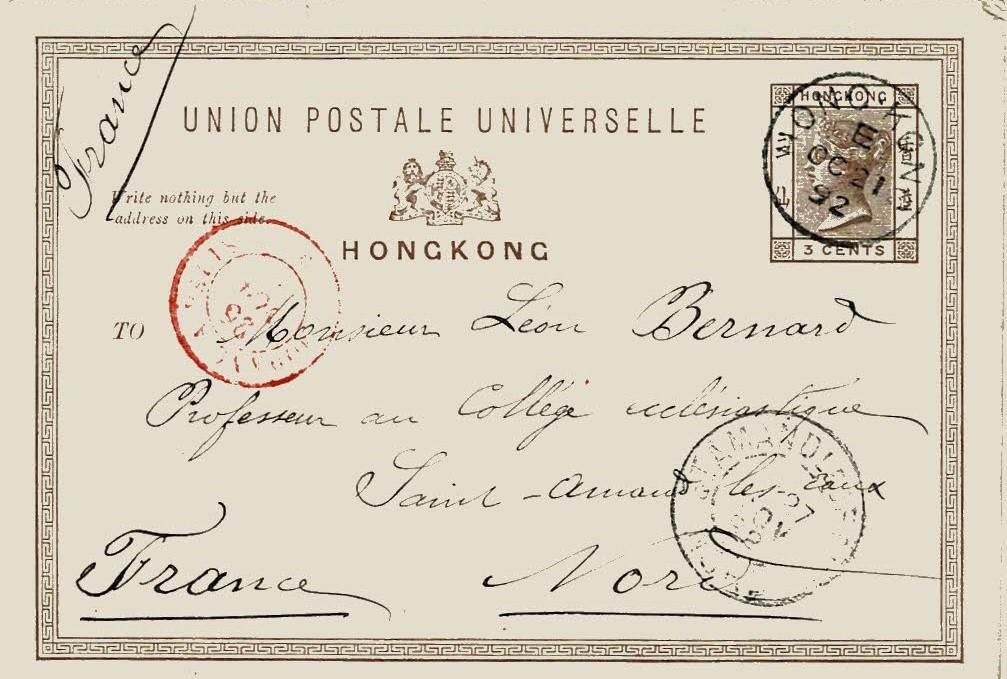 France
UNION POSTALE UNIVERSELLE
Write nothing but the
address on this side.
HONGKONG
HONGKONG
3 CENTS
HONG KONG
E
OC 21
92
PARIS
TO Monsieur Léon Bernard
Professeur au Collége ecclésiastique
Saint-Amand les-eaux
ST AMAND LES
27
NOV
France Nord